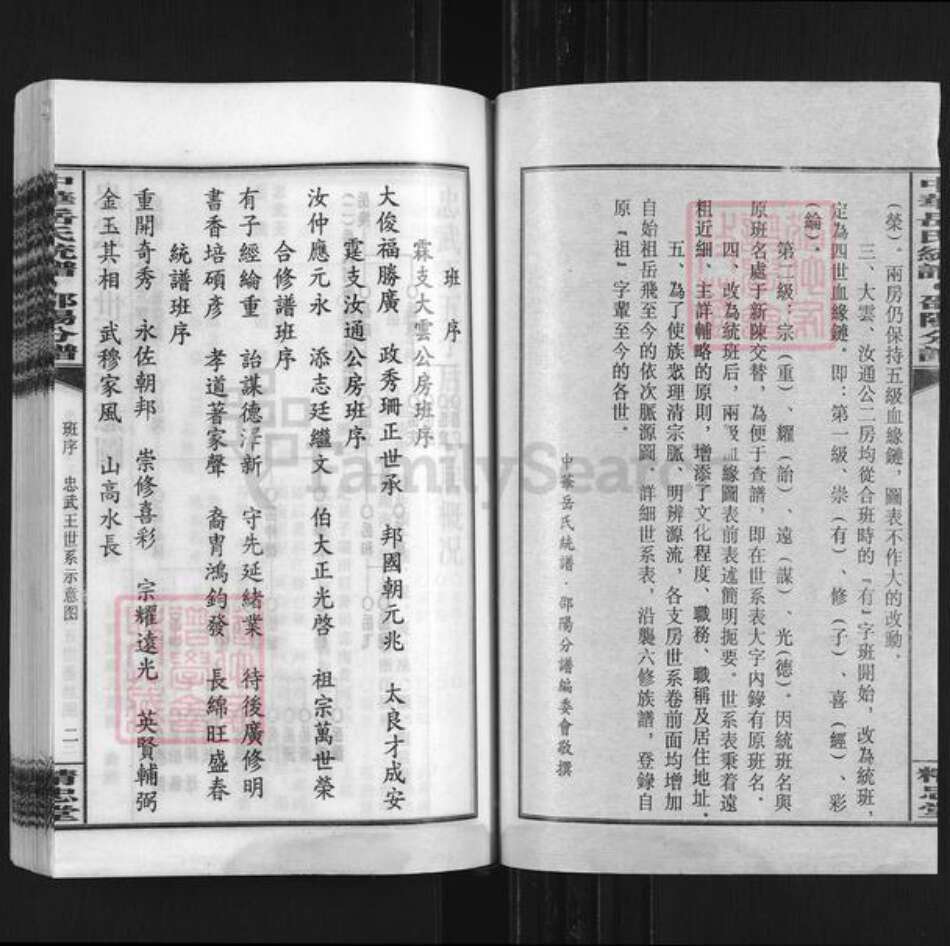 (榮)。兩房仍保持五級血緣鏈，圖表不作大的改動。
三、大雲、汝通公二房均從合班時的『有』字班開始，改為統班，
定為四世血緣鏈。即：第一級、崇(有)、修(子)、喜(經)、彩
(綸)。
第二級：宗(重)、耀(詒)、遠(謀)、光(德)。因統班名與
原班名處于新陳交替，為便于查譜，即在世系表大字內錄有原班名。
四、改為統班后，兩級血緣圖表前表述簡明扼要。世系表秉着遠
粗近細、主詳輔略的原則，增添了文化程度、職務、職稱及居住地址。
五、為了使族衆理清宗脈、明辨源流，各支房世系卷前面均增加
自始祖岳飛至今的依次脈源圖、詳細世系表，沿襲六修族譜，登錄自
原『祖』字輩至今的各世。
中華岳氏統譜·邵陽分譜編委會敬撰
精忠堂
班序
霖支大雲公房班序
大俊福勝廣 政秀珊正世承 邦國朝元兆 太良才成安
霆支汝通公房班序
汝仲應元永 添志廷繼文 伯大正光啓 祖宗萬世榮
合修譜班序
有子經綸重 詒謀德澤新 守先延緒業 待後廣修明
書香培碩彥 孝道著家聲 裔胄鴻鈞發 長綿旺盛春
統譜班序
重開奇秀 永佐朝邦 崇修喜彩 宗耀遠光 英賢輔弼
金玉其相 武穆家風 山高水長
中華岳氏統譜 邵陽分譜
班序 忠武王世系示意图
二一
精忠堂
FamilySearch